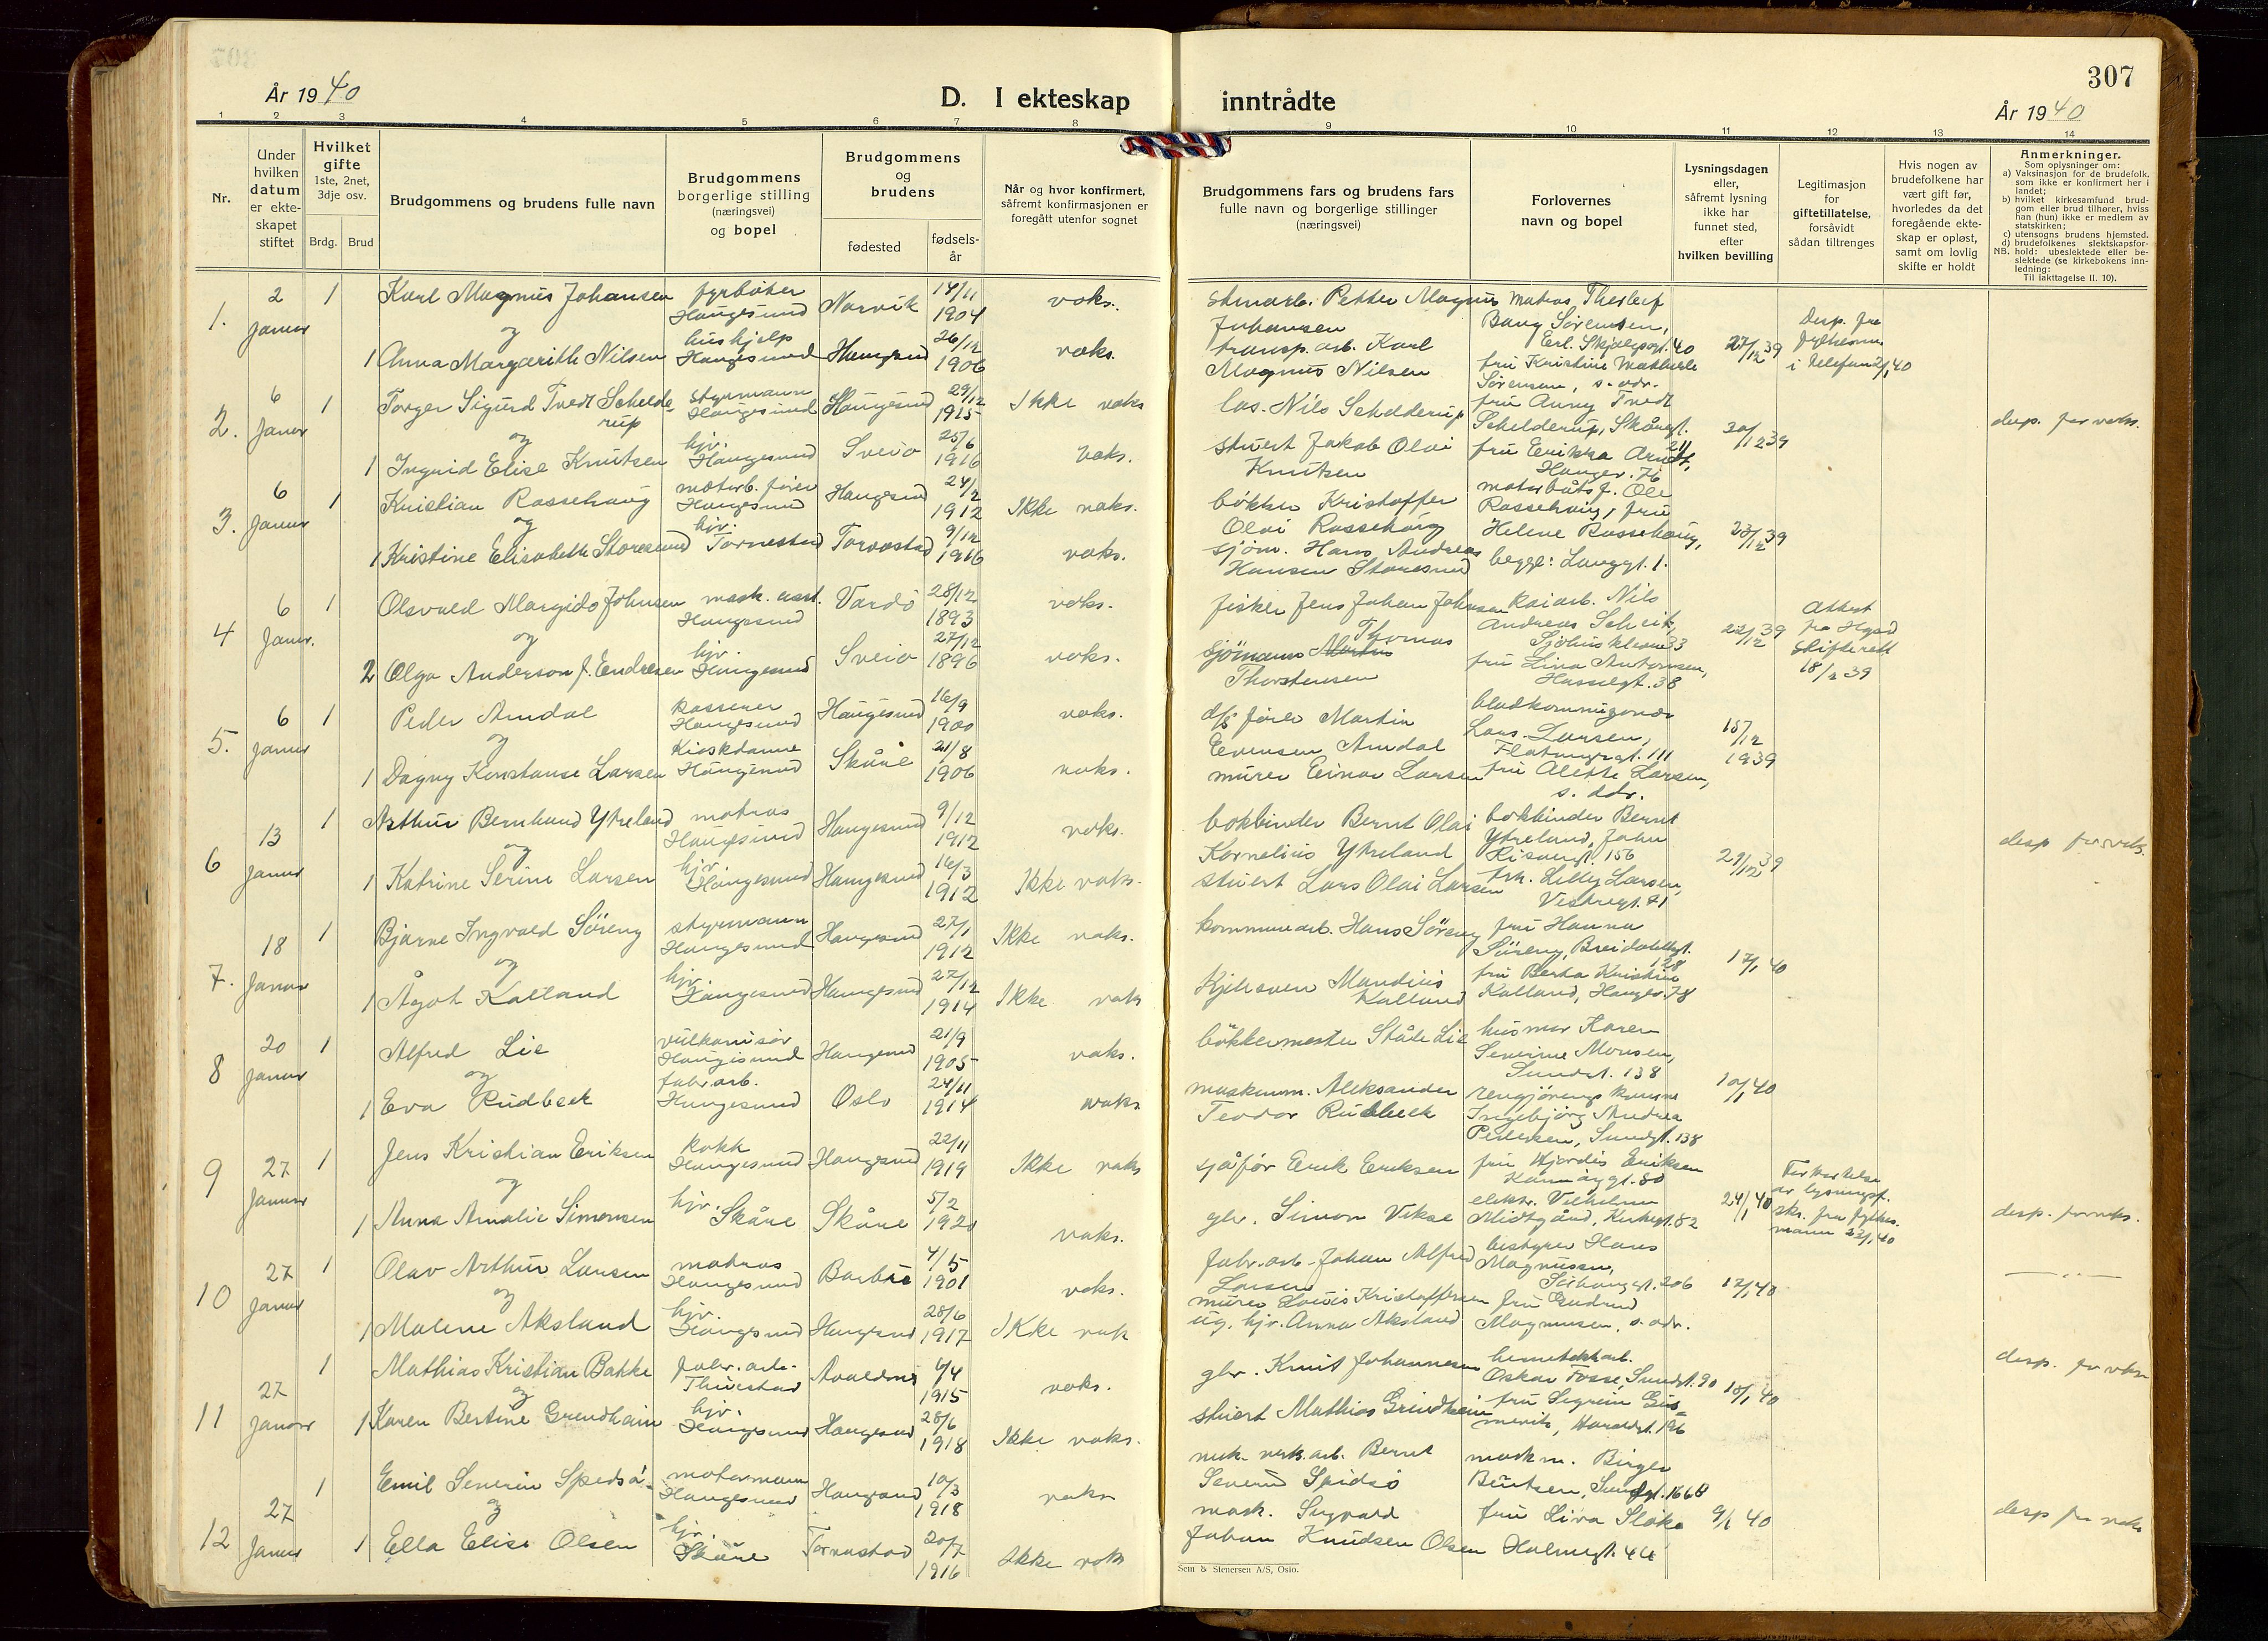 307
År 1940
D. I ekteskap inntrådte
År 1940
1 2 3 4 5 6 7 8 9 10 11 12 13 14
Nr.
Under hvilken datum er ekteskapet stiftet
Hvilket gifte 1ste, 2net, 3dje osv.
Brdg. Brud
Brudgommens og brudens fulle navn
Brudgommens borgerlige stilling (næringsvei) og bopel
Brudgommens og brudens
fødested
fødselsår
Når og hvor konfirmert, såfremt konfirmasjonen er foregått utenfor sognet
Brudgommens fars og brudens fars fulle navn og borgerlige stillinger (næringsvei)
Forlovernes navn og bopel
Lysningsdagen eller, såfremt lysning ikke har funnet sted, efter hvilken bevilling
Legitimasjon for giftetillatelse, forsåvidt sådan tiltrenges
Hvis nogen av brudefolkene har vært gift før, hvorledes da det foregående ekteskap er opløst, samt om lovlig skifte er holdt
Anmerkninger.
Som oplysninger om:
a) Vaksinasjon for de brudefolk, som ikke er konfirmert her i landet;
b) hvilket kirkesamfund brudgom eller brud tilhører, hviss han (hun) ikke er medlem av statskirken;
c) utensogns brudens hjemsted.
d) brudefolkenes slektskapsforhold: ubeslektede eller beslektede (se kirkebokens innledning:
NB. Til iakttagelse II. 10).
1. 2 Januar 1 Karl Magnus Johansen fyrbøter Haugesund Narvik 14/11 1904 vaks.
og
1 Anna Margarith Nilsen hushjelp Haugesund Haugesund 26/12 1906 vaks.
Petter Magnus Johansen
transp. arb. Karl Magnus Nilsen
matros
Bang Sørensen,
fru Kristine
Sørensen, s. adr.
27/12 39
Desp. fra
i telefon 2/1 40
2. 6 Januar 1 Torger Sigurd Tvedt Schelderup styrmann Haugesund Haugesund 29/12 1915 Ikke vaks
og
1 Ingrid Elise Knutsen hjv. Haugesund Sveio 25/6 1916 vaks.
las. Nils Schelderup
stuert Jakob Olai Knutsen
fru Anny Tvedt
Schelderup, Skåregt.
fru Erikka
30/12 39
desp. for vaks.
3. 6 Januar 1 Kristian Rossehaug motorb. fører Haugesund Haugesund 24/2 1912 Ikke vaks.
og
1 Kristine Elisabeth Storesund hjv. Torvestad Torvastad 9/12 1916 vaks.
bøkker Kristoffer Olai Rossehaug
sjøm. Hans Andreas Hansen Storesund
motorbåtsf. Ole
Rossehaug, fru
Helene Rossehaug,
begge: Langgt. 1.
23/12 39
4 6 Januar. 1 Olsvald Margido Johnsen mask. Haugesund Vardø 28/12 1893 vaks.
og
2 Olga Anderson f. Endresen hjv. Haugesund Sveio 27/12 1896 vaks.
fisker Jens Johan Johnsen
sjømann Thomas Thorstensen
Kaiarb. Nils
Andreas
fru Lina Antonsen,
Hasselgt. 38
22/12 39
Attest
fra Hgsd
skifterett
18/12 39
5. 6 Januar 1 Peder Amdal kasserer Haugesund Haugesund 16/9 1900 vaks.
og
1 Dagny Konstanse Larsen Kioskdame Haugesund Skåre 21/8 1906 vaks.
d/s fører Martin Evensen Amdal
murer Einar Larsen
Lars Larsen,
fru Alette Larsen,
s. adr.
15/12 1939
6 13 Januar 1 Arthur Bernhard Ytreland matros Haugesund Haugesund 9/12 1912 vaks.
og
1 Katrine Serine Larsen hjv. Haugesund Haugesund 16/3 1912 Ikke vaks.
bokbinder Bernt Olai Kornelius Ytreland
stuert Lars Olai Larsen
bokbinder Bernt
Ytreland,
frk. Lilly Larsen,
29/12 39
desp for vaks.
7. 18 Januar 1 Bjarne Ingvald Söreng styrmann Haugesund Haugesund 27/1 1912 Ikke vaks.
og
1 Ågot Kalland hjv. Haugesund Haugesund 27/12 1914 Ikke vaks
kommunearb. Hans Söreng
Mandius Kalland
fru Hanna
Söreng, Breidablikgt. 128
fru Berta Kristine
Kalland, Haugev. 78
17/1 40
8 20 Januar 1 Alfred Lie vulkanisør Haugesund Haugesund 21/9 1905 vaks.
og
1 Eva Rudbeck fabr. arb. Haugesund Oslo 24/11 1914 vaks
bøkkermester Ståle Lie
maskinm. Aleksander Teodor Rudbeck
husmor Karen
Severine Monsen,
Sundgt. 138
rengjørings kone
Ingebjørg Andrea
Pedersen, Sundgt. 138
10/1 40
9 27 Januar 1 Jens Kristian Eriksen kokk Haugesund Haugesund 22/11 1919 Ikke vaks
og
1 Anna Amalie Simonsen hjv. Skåre Skåre 5/2 1920 vaks.
sjåför Erik Eriksen
gbr. Simon Vikse
fru Hjördis Eriksen
elektr. Vilhelm
Midtgård, Kirkegt. 82
24/1 40
av lysningsf.
fra fylkesmann 23/1 40
desp. for vaks.
10 27 Januar 1 Olav Arthur Larsen matros Haugesund 4/5 1901 vaks.
og
1 Malene Aksland hjv. Haugesund Haugesund 28/6 1917 Ikke vak
fabr. arb. Johan Alfred Larsen
murer Louis Kristoffersen
ug. hjv. Anna Aksland
bestyrer Hans
Magnussen,
fru Gudrun
Magnussen, s. adr.
17/1 40
— „ —
11 27 Januar 1 Mathias Kristian Bakke fabr. arb. Avaldsnes 6/4 1915 vaks.
og
1 Karen Bertine Grindheim hjv. Haugesund Haugesund 28/6 1918 Ikke vaks.
gbr. Knut Johannesen
stuert Mathias Grindheim
Oskar Fosse, Sundgt. 90
fru Sigrun
Haraldsgt. 196
10/1 40
desp. for vaks
12 27 Januar 1 Emil Severin Spedsö motormann Haugesund Haugesund 10/3 1918 vaks
og
1 Ella Elise Olsen hjv. Skåre Torvastad 20/7 1916 Ikke vaks
mek. verks. arb. Bernt Severin Spidsö
mask. Sigvald Johan Knudsen Olsen
maskm. Birger
Berntsen,
fru Liva
Holmegt. 44
9/1 40
desp for vaks
Sem & Stenersen A/S, Oslo.